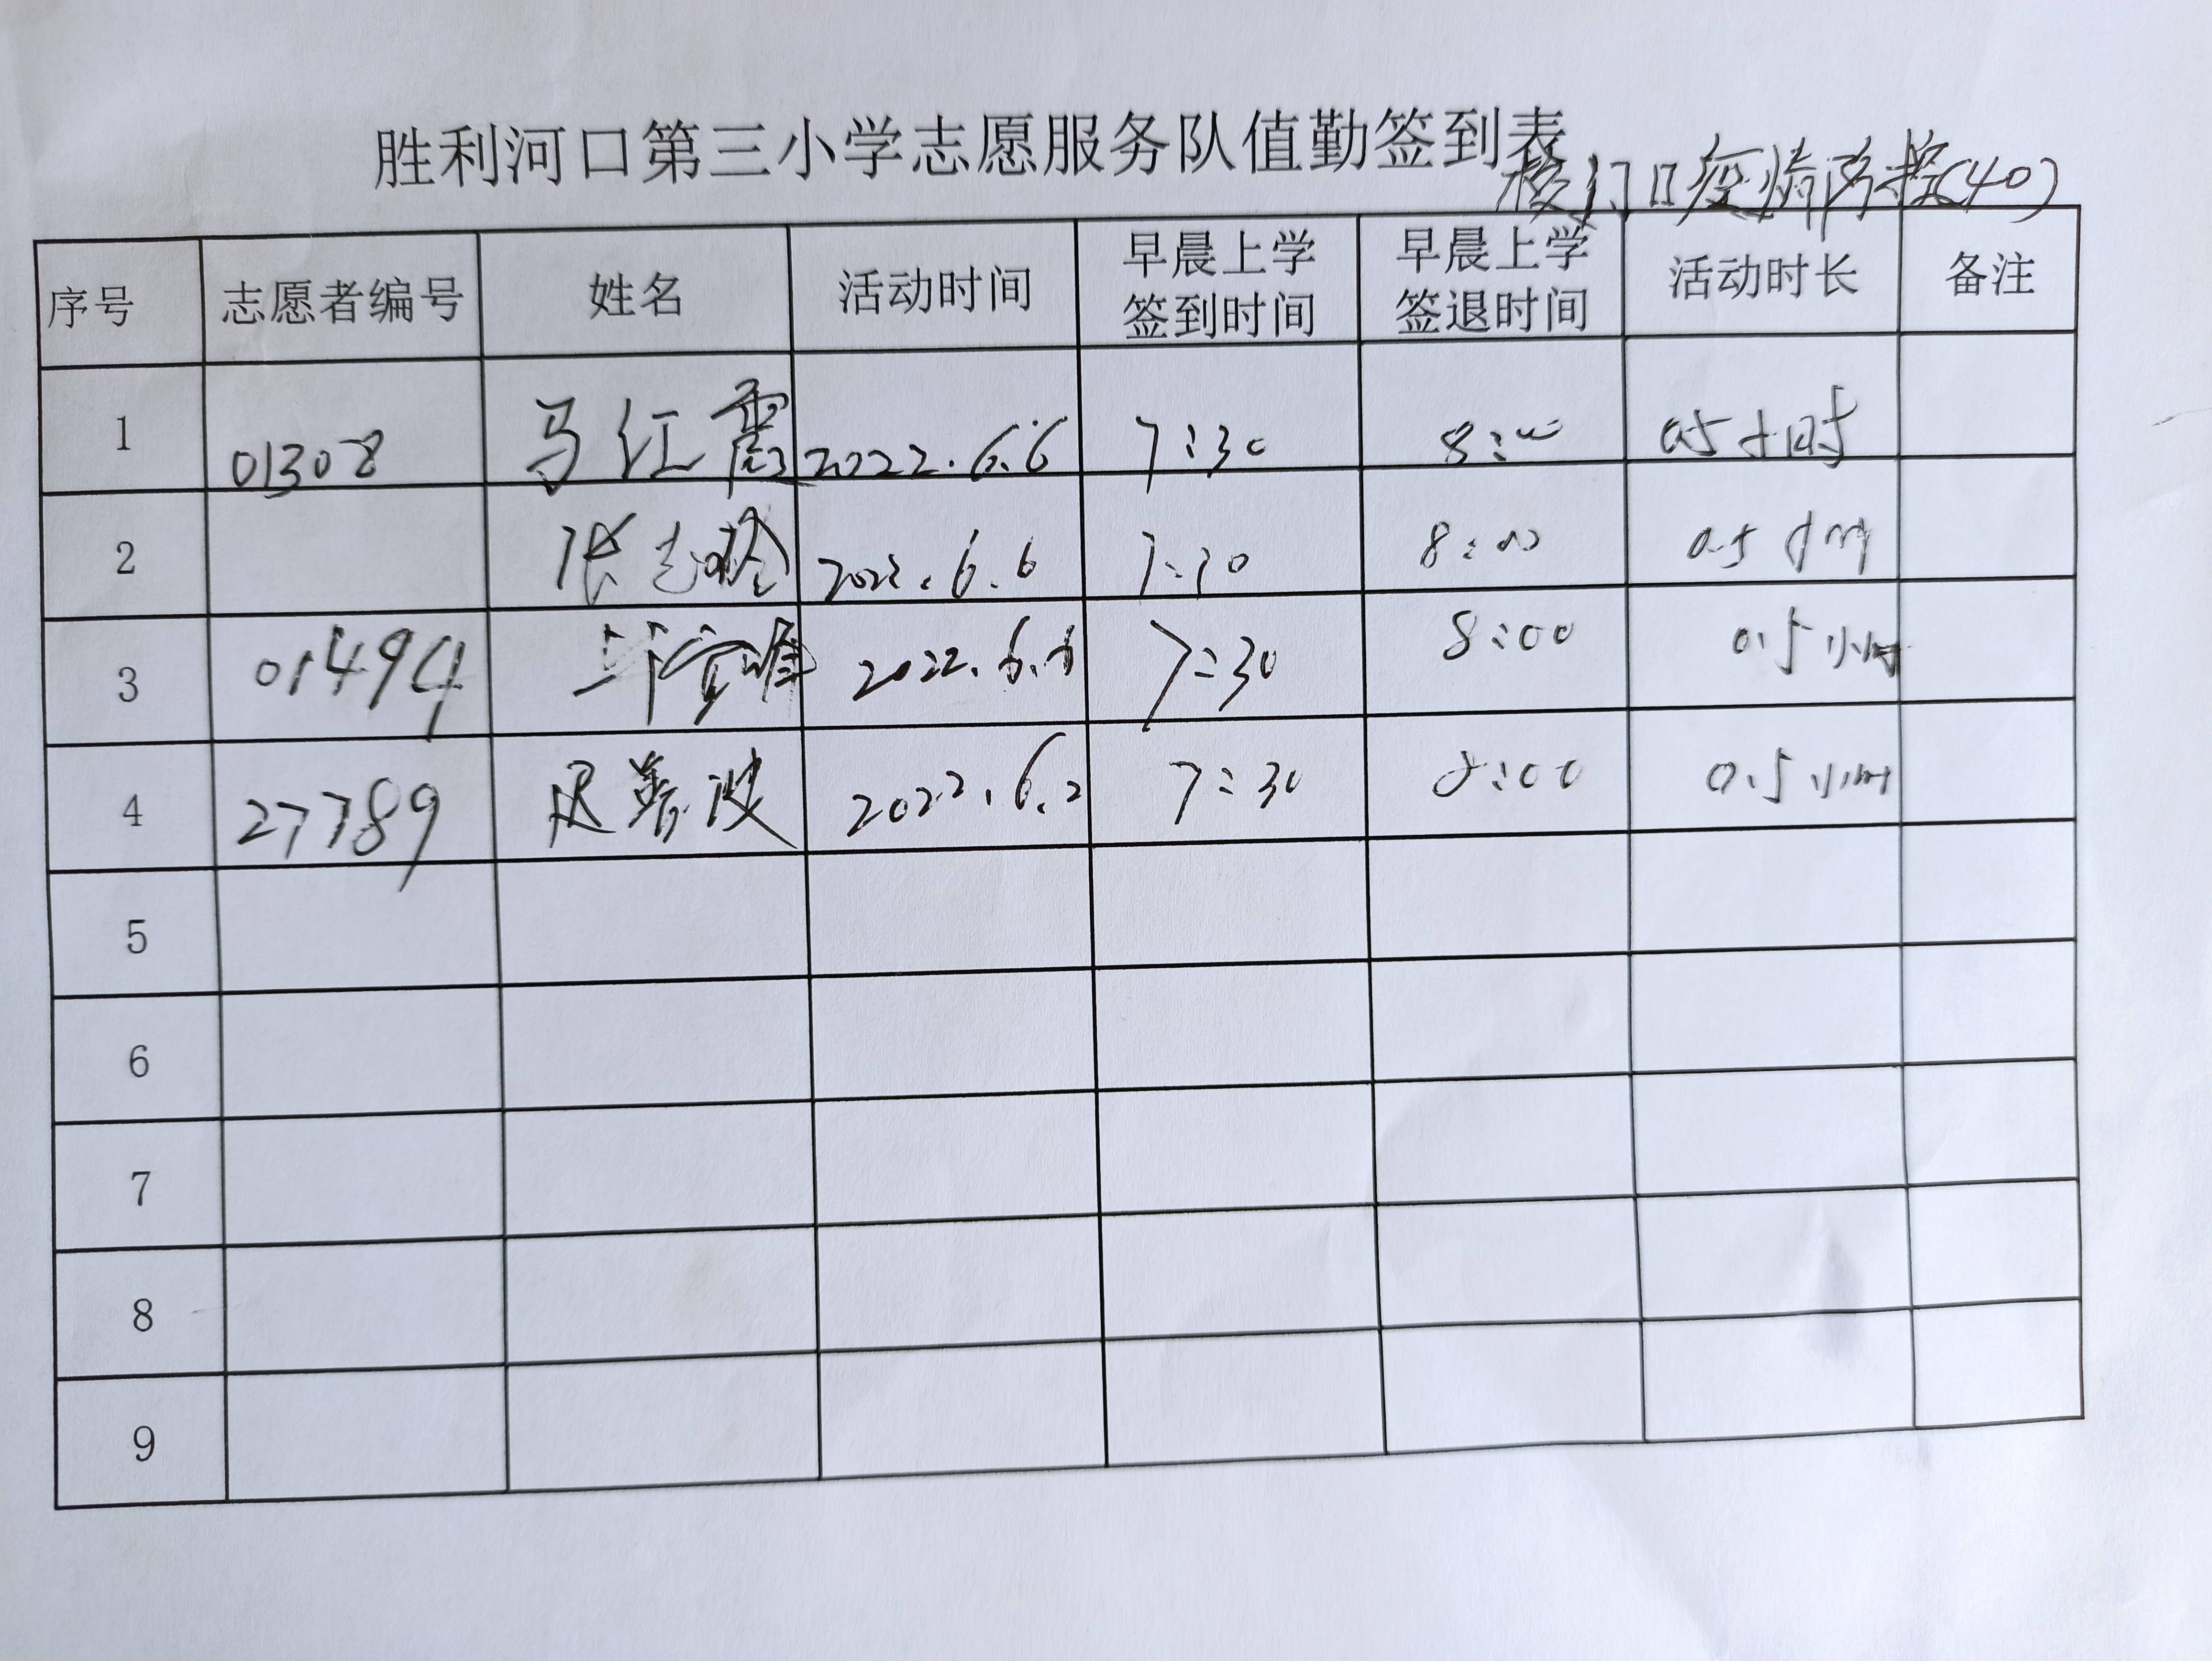 胜利河口第三小学志愿服务队值勤签到表
校门口疫情防控(40)
序号 志愿者编号 姓名 活动时间 早晨上学签到时间 早晨上学签退时间 活动时长 备注
1 01308 马红霞 2022.6.6 7:30 8:00 0.5小时
2 张志 2022.6.6 7:30 8:00 0.5小时
3 01494 2022.6.6 7:30 8:00 0.5小时
4 27789 波 2022.6.2 7:30 8:00 0.5小时
5
6
7
8
9